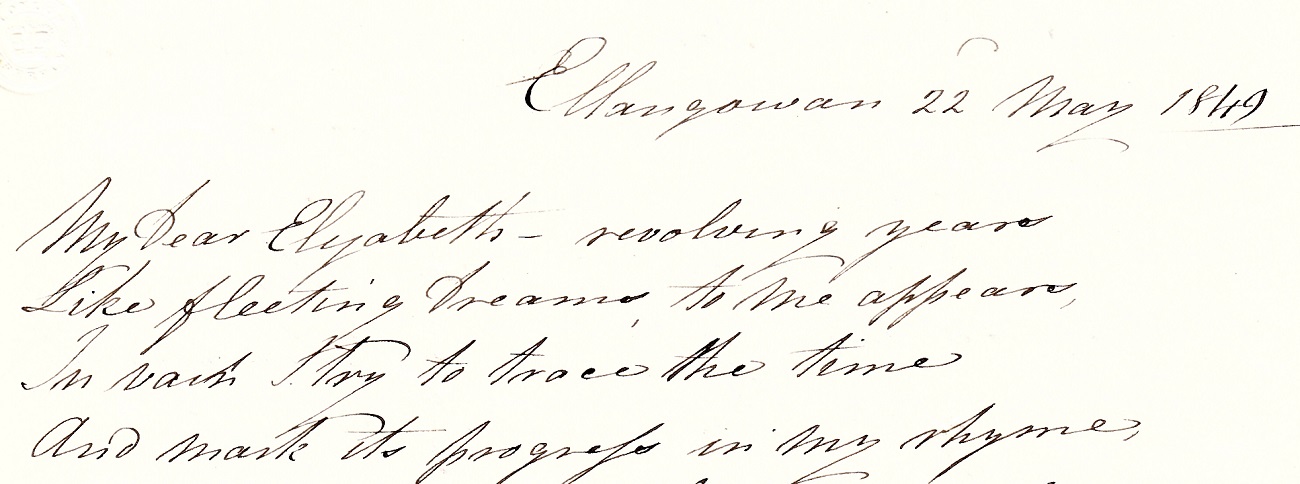 Ellangowan 22 May 1849
My Dear Elizabeth – revolving years
Like fleeting Dreams, to me appears,
In vain I try to trace the time
And mark its progress in my rhyme,